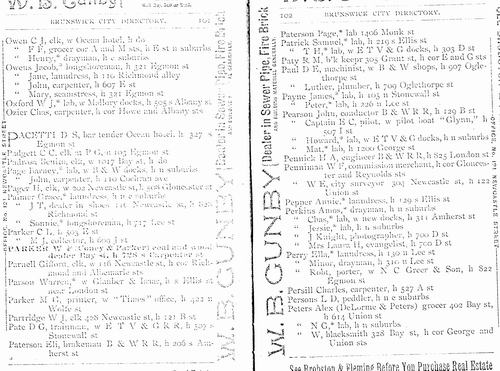 W. B. Gunby
BRUNSWICK CITY DIRECTORY. 101
Owen C J, clk, w Ocean hotel, h do
" F F, grocer cor A and M sts, h E st n suburbs
" Henry, drayman, h e suburbs
Owens Jacob, longshoreman, h 321 Egmont
" Jane, laundress, h 116 Richmond alley
" John, carpenter, h 607 E st
" Mary, seamstress, h 321 Egmont
Oxford W J, lab, w Mallory docks, h 505 s Albany st
Ozier Chas, carpenter, h cor Howe and Albany sts
PACETTI D S, bar tender Ocean hotel, h 327 s Egmont st
Padgett C C, clk at P G, h 105 Egmont
h do
Page Barney, lab, w B & W docks, h n suburbs
" John, carpenter, h 110 Cochran ave
Pager H, clk, w 202 Newcastle st, h 508 Gloucester st
Palmer Grace, laundress, h n e suburbs
" J T, dealer in shoes 116 Newcastle st, h 628 Richmond st
" Sonnie, longshoreman, h 717 Lee st
Parker C L, h 503 E st
" M J, collector, h 609 J st
PARKER W P (Coney & Parker) coal and wood dealer Bay st, h 728 s Carpenter st
Parnell Gifford, clk, w 116 Newcastle st, h cor Richmond and Albemarle sts
Parson Warren, w Glauber & Isaac, h s Ellis st near London st
Parker M G, printer, w "Times" office, h 422 n Wolfe st
Partridge W J, clk 428 Newcastle st, h 121 B st
Pate D G, trainman, w E T V & G R R, h 509 s Stonewall st
Paterson Eli, brakeman B & W R R, h 206 s Amherst st
Dealer in Sewer Pipe, Fire Brick
W. B. GUNBY
102 BRUNSWICK CITY DIRECTORY.
Paterson Page, lab 1406 Monk st
Patrick Samuel, lab, h 219 s Ellis st
" T H, lab, w E T V & G docks, h 303 D st
Paty R M, b'k keepr 305 Grant st, h cor E and G sts
Paul D E, machinist, w B & W shops, h 907 Oglethorpe st
" Luther, plumber, h 709 Oglethorpe st
Payne James, lab, h 103 n Stonewall st
" Peter, lab, h 226 n Lee st
Pearson John, conductor B & W R R, h 129 B st
" Captain R C, pilot, w pilot boat "Glynn," h 507 I st
" Howard, lab, w E T V & G docks, h n suburbs
" Mat, lab, h 1200 George st
Pennick H A, engineer B & W R R, h 825 London st
Penniman W F, commission merchant, h cor Gloucester and Reynolds sts
" W E, city surveyor 304 Newcastle st, h 122 Union st
Pepper Annie, laundress, h 129 s Ellis st
Perkins Amos, drayman, h n suburbs
" Chas, lab, w new docks, h 311 Amherst st
" Jersie, lab, h n suburbs
" J Knight, photographer, h 700 D st
" Mrs Laura H, evangelist, h 700 D st
Perry Ella, laundress, h 130 n Lee st
" Mino, drayman, h 310 n Lee st
" Robt, porter, w N C Greer & Son, h 822 Egmont st
Persill Charles, carpenter, h 527 A st
Persons L D, peddler, h n e suburbs
Peters Alex (DeLorme & Peters) grocer 402 Bay st, h 614 Union st
" N G, lab, h n suburbs
" W, blacksmith 328 Bay st, h cor George and Union sts
Dealer in Sewer Pipe, Fire Brick
AND BUILDING MATERIAL GENERALLY.
W. B. GUNBY
See Brobston & Fleming Before You Purchase Real Estate